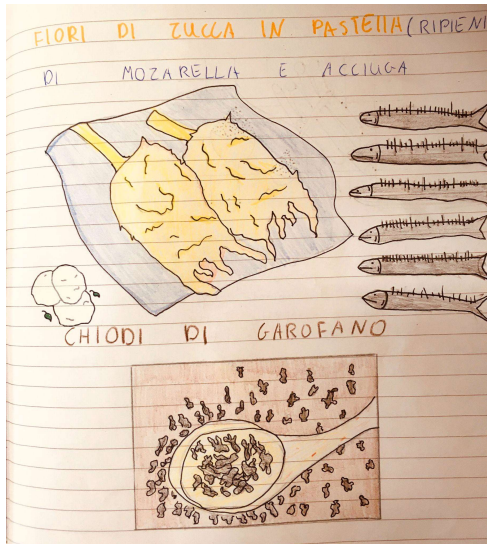 FIORI DI ZUCCA IN PASTETTA (RIPIENI
DI MOZARELLA E ACCIUGA
CHIODI DI GAROFANO